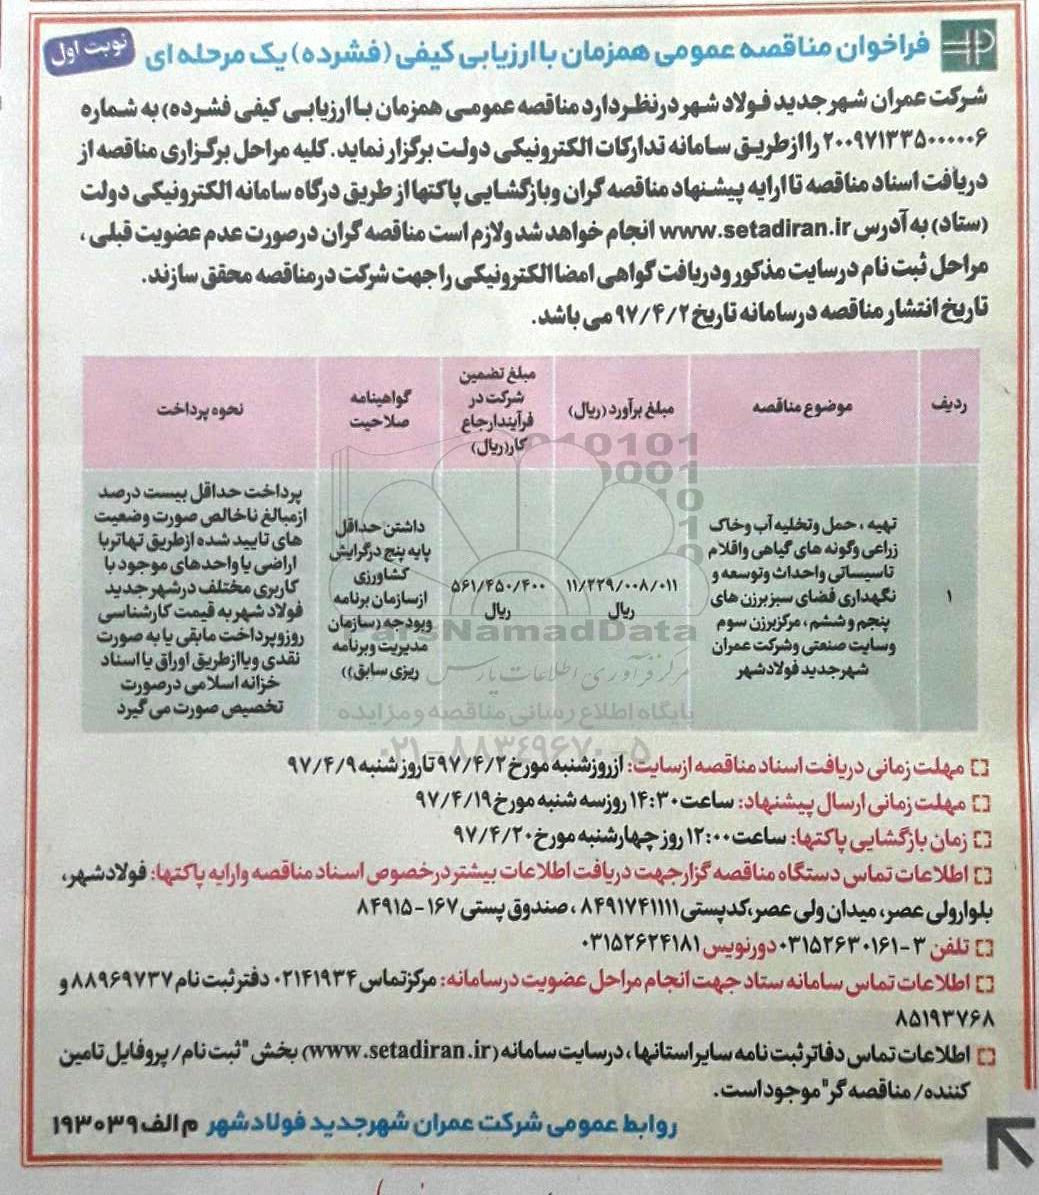 فراخوان مناقصه عمومی همزمان با ارزیابی کیفی (فشرده) یک مرحله ای
نوبت اول
شرکت عمران شهر جدید فولاد شهر درنظر دارد مناقصه عمومی همزمان با ارزیابی کیفی فشرده) به شماره
۲۰۰۹۷۱۳۳۵۰۰۰۰۰۶ را از طریق سامانه تدارکات الکترونیکی دولت برگزار نماید. کلیه مراحل برگزاری مناقصه از
دریافت اسناد مناقصه تا ارایه پیشنهاد مناقصه گران وبازگشایی پاکتها از طریق درگاه سامانه الکترونیکی دولت
(ستاد) به آدرس www.setadiran.ir انجام خواهد شد ولازم است مناقصه گران درصورت عدم عضویت قبلی ،
مراحل ثبت نام درسایت مذکور ودریافت گواهی امضا الکترونیکی را جهت شرکت درمناقصه محقق سازند.
تاریخ انتشار مناقصه درسامانه تاریخ ۹۷/۴/۲ می باشد.
ردیف
موضوع مناقصه
مبلغ برآورد (ریال)
مبلغ تضمین
شرکت در
فرآیند ارجاع
کار(ریال)
گواهینامه
صلاحیت
نحوه پرداخت
۱
تهیه ، حمل وتخلیه آب وخاک
زراعی وگونه های گیاهی واقلام
تاسیساتی واحداث وتوسعه و
نگهداری فضای سبز برزن های
پنجم و ششم ، مرکز برزن سوم
وسایت صنعتی وشرکت عمران
شهر جدید فولادشهر
۱۱/۲۲۹/۰۰۸/۰۱۱
ریال
۵۶۱/۴۵۰/۴۰۰
ریال
داشتن حداقل
پایه پنج درگرایش
کشاورزی
ازسازمان برنامه
وبودجه (سازمان
مدیریت وبرنامه
ریزی سابق))
پرداخت حداقل بیست درصد
از مبالغ ناخالص صورت وضعیت
های تایید شده ازطریق تهاتر با
اراضی یا واحدهای موجود با
کاربری مختلف درشهر جدید
فولاد شهر به قیمت کارشناسی
روز وپرداخت مابقی یا به صورت
نقدی ویا ازطریق اوراق یا اسناد
خزانه اسلامی درصورت
تخصیص صورت می گیرد
ParsNamadData
مرکز فرآوری اطلاعات پارس
پایگاه اطلاع رسانی مناقصه و مزایده
۰۲۱-۸۸۳۴۹۶۷۰-۵
مهلت زمانی دریافت اسناد مناقصه ازسایت: از روزشنبه مورخ ۹۷/۴/۲ تا روز شنبه ۹۷/۴/۹
مهلت زمانی ارسال پیشنهاد: ساعت ۱۴:۳۰ روزسه شنبه مورخ ۹۷/۴/۱۹
زمان بازگشایی پاکتها: ساعت ۱۲:۰۰ روز چهارشنبه مورخ ۹۷/۴/۲۰
اطلاعات تماس دستگاه مناقصه گزار جهت دریافت اطلاعات بیشتر درخصوص اسناد مناقصه وارایه پاکتها: فولادشهر،
بلوار ولی عصر، میدان ولی عصر، کدپستی ۸۴۹۱۷۴۱۱۱۱ ، صندوق پستی ۱۶۷-۸۴۹۱۵
تلفن ۳-۰۳۱۵۲۶۳۰۱۶۱ دورنویس ۰۳۱۵۲۶۲۴۱۸۱
اطلاعات تماس سامانه ستاد جهت انجام مراحل عضویت درسامانه: مرکزتماس ۰۲۱۴۱۹۳۴ دفتر ثبت نام ۸۸۹۶۹۷۳۷ و
۸۵۱۹۳۷۶۸
اطلاعات تماس دفاتر ثبت نامه سایر استانها ، درسایت سامانه (www.setadiran.ir) بخش "ثبت نام/ پروفایل تامین
کننده/ مناقصه گر" موجود است.
روابط عمومی شرکت عمران شهر جدید فولادشهر م الف ۱۹۳۰۳۹